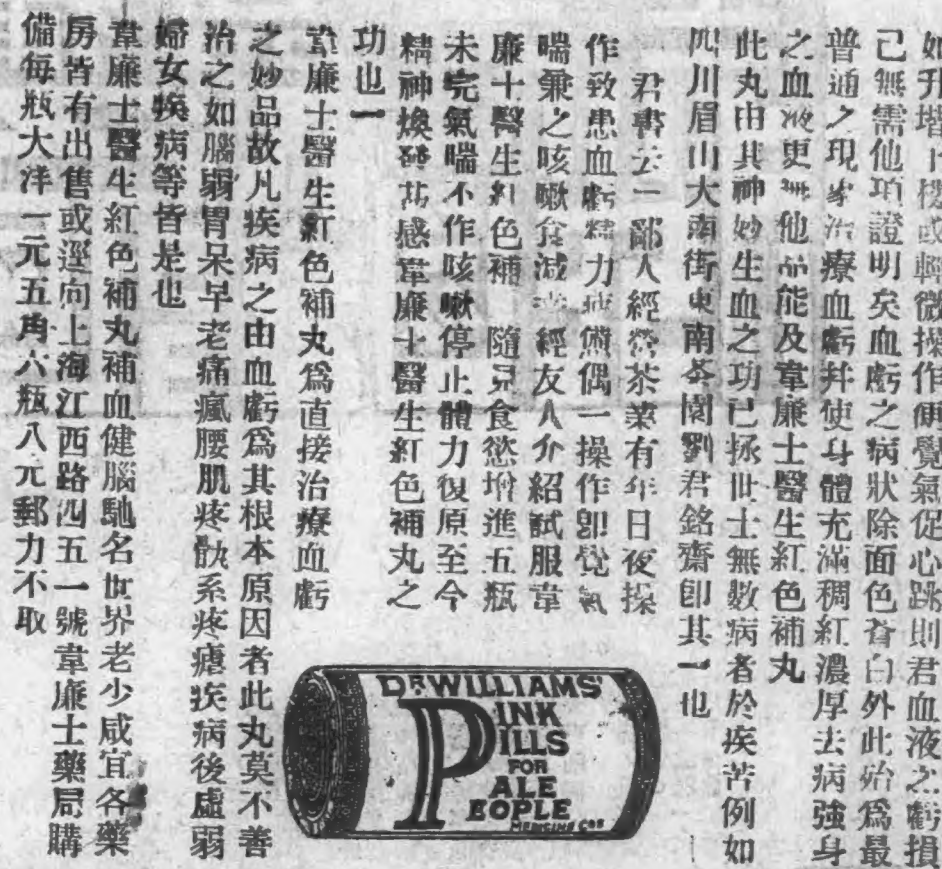 如升堦下樓或輕微操作便覺氣促心跳則君血液之虧損
已無需他項證明矣血虧之病狀除面色蒼白外此殆爲最
普通之現象治療血虧幷使身體充滿稠紅濃厚去病強身
之血液更無他品能及韋廉士醫生紅色補丸
此丸由其神妙生血之功已拯世士無數病者於疾苦例如
四川眉山大南街東南茶園劉君銘齋卽其一也
君書云一鄙人經營茶業有年日夜操
作致患血虧精力疲憊偶一操作卽覺氣
喘兼之咳嗽食減 經友人介紹試服韋
廉士醫生紅色補 隨見食慾增進五瓶
未完氣喘不作咳嗽停止體力復原至今
精神煥發 感韋廉士醫生紅色補丸之
功也一
韋廉士醫生紅色補丸爲直接治療血虧
之妙品故凡疾病之由血虧爲其根本原因者此丸莫不善
治之如腦弱胃呆早老痛瘋腰肌疼骩系疼瘧疾病後虛弱
婦女疾病等皆是也
韋廉士醫生紅色補丸補血健腦馳名世界老少咸宜各藥
房皆有出售或逕向上海江西路四五一號韋廉士藥局購
備每瓶大洋一元五角六瓶八元郵力不取
DR WILLIAMS'
PINK
PILLS
FOR
PALE
PEOPLE
MEDICINE Cos